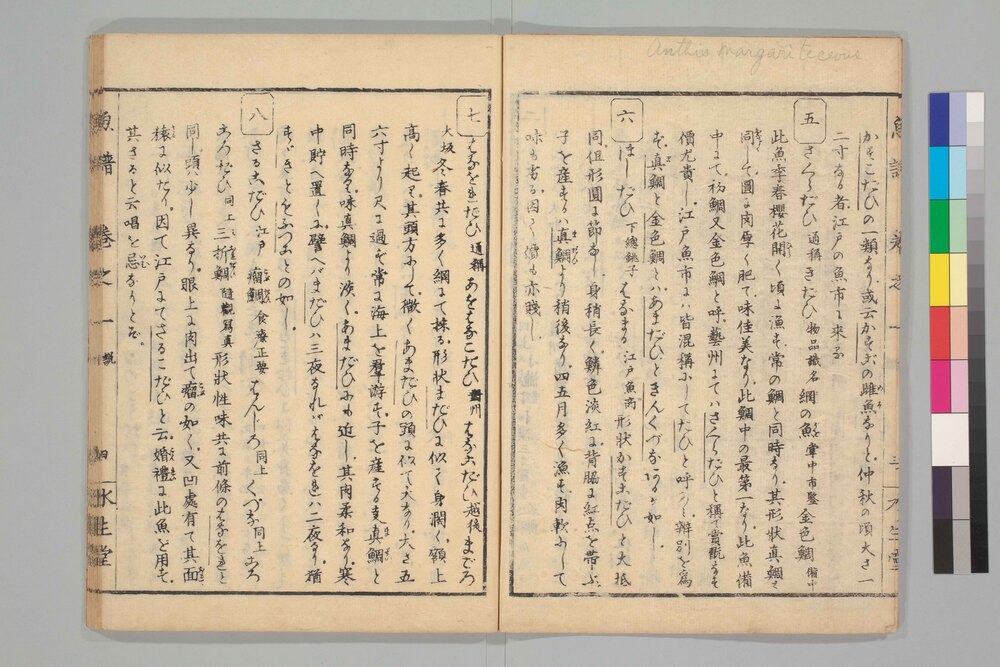 Anthis margariteceous
かすこだひの一類なり或云かすごの雌魚なりと仲秋の頃大さ一
二寸なる者江戸の魚市に来る
五
さくらだひ 通稱 きだひ 物品識名 網の魚 掌中市鑒 金色鯛 備中
此魚季春櫻花開く頃に漁す常の鯛と同時なり其形状真鯛と
同くして圓に肉厚く肥て味佳美なり此鯛中の最第一なり此魚備
中にて初鯛又金色鯛と呼藝州にてハさくらだひと稱て賞翫す
價尤貴し江戸魚市にハ皆混稱にしてたひと呼のミ辨別を為
ず真鯛と金色鯛とハあまだひときんくづなに
六
ほしだひ 下總銚子 はなまる 江戸魚商 形状かすこだひと大抵
同但形圓に節なし身稍長く鱗色淡紅に背脇に紅点を帯ぶ
子を産するハ真鯛より稍後なり四五月多く漁す肉軟にして
味も劣る因て價も亦賤し
七
はなをれだひ 通稱 あをはなこだひ はなだひ 越後 まだら
大坂 冬春共に多く網にて採る形状まだひに似て身濶く額上
高く起り其頭方にして微くあまだひの頭に似て大なり大さ五
六寸より尺に過ず常に海上を羣游す子を産する支真鯛と
同時なり味真鯛より淡くあまだひにも近し其肉柔和なり寒
中貯へ置くに譬へバまだひハ三夜なれバはなをれハ二夜なり猶
すゞきとをふつことの如し
八
さるこだひ 江戸 瘤鯛 食療正要 はんしろ 同上 くづな 同上
ころだひ 同上 三折鯛 隨觀寫真 形状性味共に前條のはなをれと
同し頭少し異なり眼上に肉出て瘤の如く又凹處有て其面
猿に似たり因て江戸にてさるこだひと云婚禮に此魚を用ず
其さると云唱を忌なりとぞ
魚譜 巻之一 説 四 水生堂